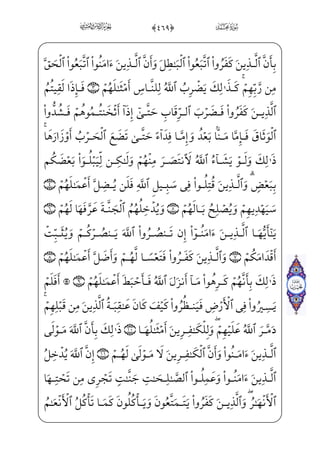 ﴿٤٦٩﴾
بِأَنَّ ٱلَّذِينَ كَفَرُواْ ٱتَّبَعُواْ ٱلۡبَٰطِلَ وَأَنَّ ٱلَّذِينَ ءَامَنُواْ ٱتَّبَعُواْ ٱلۡحَقَّ
مِن رَّبِّهِمۡۚ كَذَٰلِكَ يَضۡرِبُ ٱللَّهُ لِلنَّاسِ أَمۡثَٰلَهُمۡ ٣ فَإِذَا لَقِيتُمُ
ٱلَّذِينَ كَفَرُواْ فَضَرۡبَ ٱلرِّقَابِ حَتَّىٰٓ إِذَآ أَثۡخَنتُمُوهُمۡ فَشُدُّواْ
ٱلۡوَثَاقَ فَإِمَّا مَنَّۢا بَعۡدُ وَإِمَّا فِدَآءً حَتَّىٰ تَضَعَ ٱلۡحَرۡبُ أَوۡزَارَهَاۚ
ذَٰلِكَۖ وَلَوۡ يَشَآءُ ٱللَّهُ لَٱنتَصَرَ مِنۡهُمۡ وَلَٰكِن لِّيَبۡلُوَاْ بَعۡضَكُم
بِبَعۡضٖۗ وَٱلَّذِينَ قُتِلُواْ فِي سَبِيلِ ٱللَّهِ فَلَن يُضِلَّ أَعۡمَٰلَهُمۡ ٤
سَيَهۡدِيهِمۡ وَيُصۡلِحُ بَالَهُمۡ ٥ وَيُدۡخِلُهُمُ ٱلۡجَنَّةَ عَرَّفَهَا لَهُمۡ ٦
يَٰٓأَيُّهَا ٱلَّذِينَ ءَامَنُوٓاْ إِن تَنصُرُواْ ٱللَّهَ يَنصُرۡكُمۡ وَيُثَبِّتۡ
أَقۡدَامَكُمۡ ٧ وَٱلَّذِينَ كَفَرُواْ فَتَعۡسٗا لَّهُمۡ وَأَضَلَّ أَعۡمَٰلَهُمۡ ٨
ذَٰلِكَ بِأَنَّهُمۡ كَرِهُواْ مَآ أَنزَلَ ٱللَّهُ فَأَحۡبَطَ أَعۡمَٰلَهُمۡ ٩ ۞ أَفَلَمۡ
يَسِيرُواْ فِي ٱلۡأَرۡضِ فَيَنظُرُواْ كَيۡفَ كَانَ عَٰقِبَةُ ٱلَّذِينَ مِن قَبۡلِهِمۡۖ
دَمَّرَ ٱللَّهُ عَلَيۡهِمۡۖ وَلِلۡكَٰفِرِينَ أَمۡثَٰلُهَا ١٠ ذَٰلِكَ بِأَنَّ ٱللَّهَ مَوۡلَى
ٱلَّذِينَ ءَامَنُواْ وَأَنَّ ٱلۡكَٰفِرِينَ لَا مَوۡلَىٰ لَهُمۡ ١١ إِنَّ ٱللَّهَ يُدۡخِلُ
ٱلَّذِينَ ءَامَنُواْ وَعَمِلُواْ ٱلصَّٰلِحَٰتِ جَنَّٰتٖ تَجۡرِي مِن تَحۡتِهَا
ٱلۡأَنۡهَٰرُۖ وَٱلَّذِينَ كَفَرُواْ يَتَمَتَّعُونَ وَيَأۡكُلُونَ كَمَا تَأۡكُلُ ٱلۡأَنۡعَٰمُ